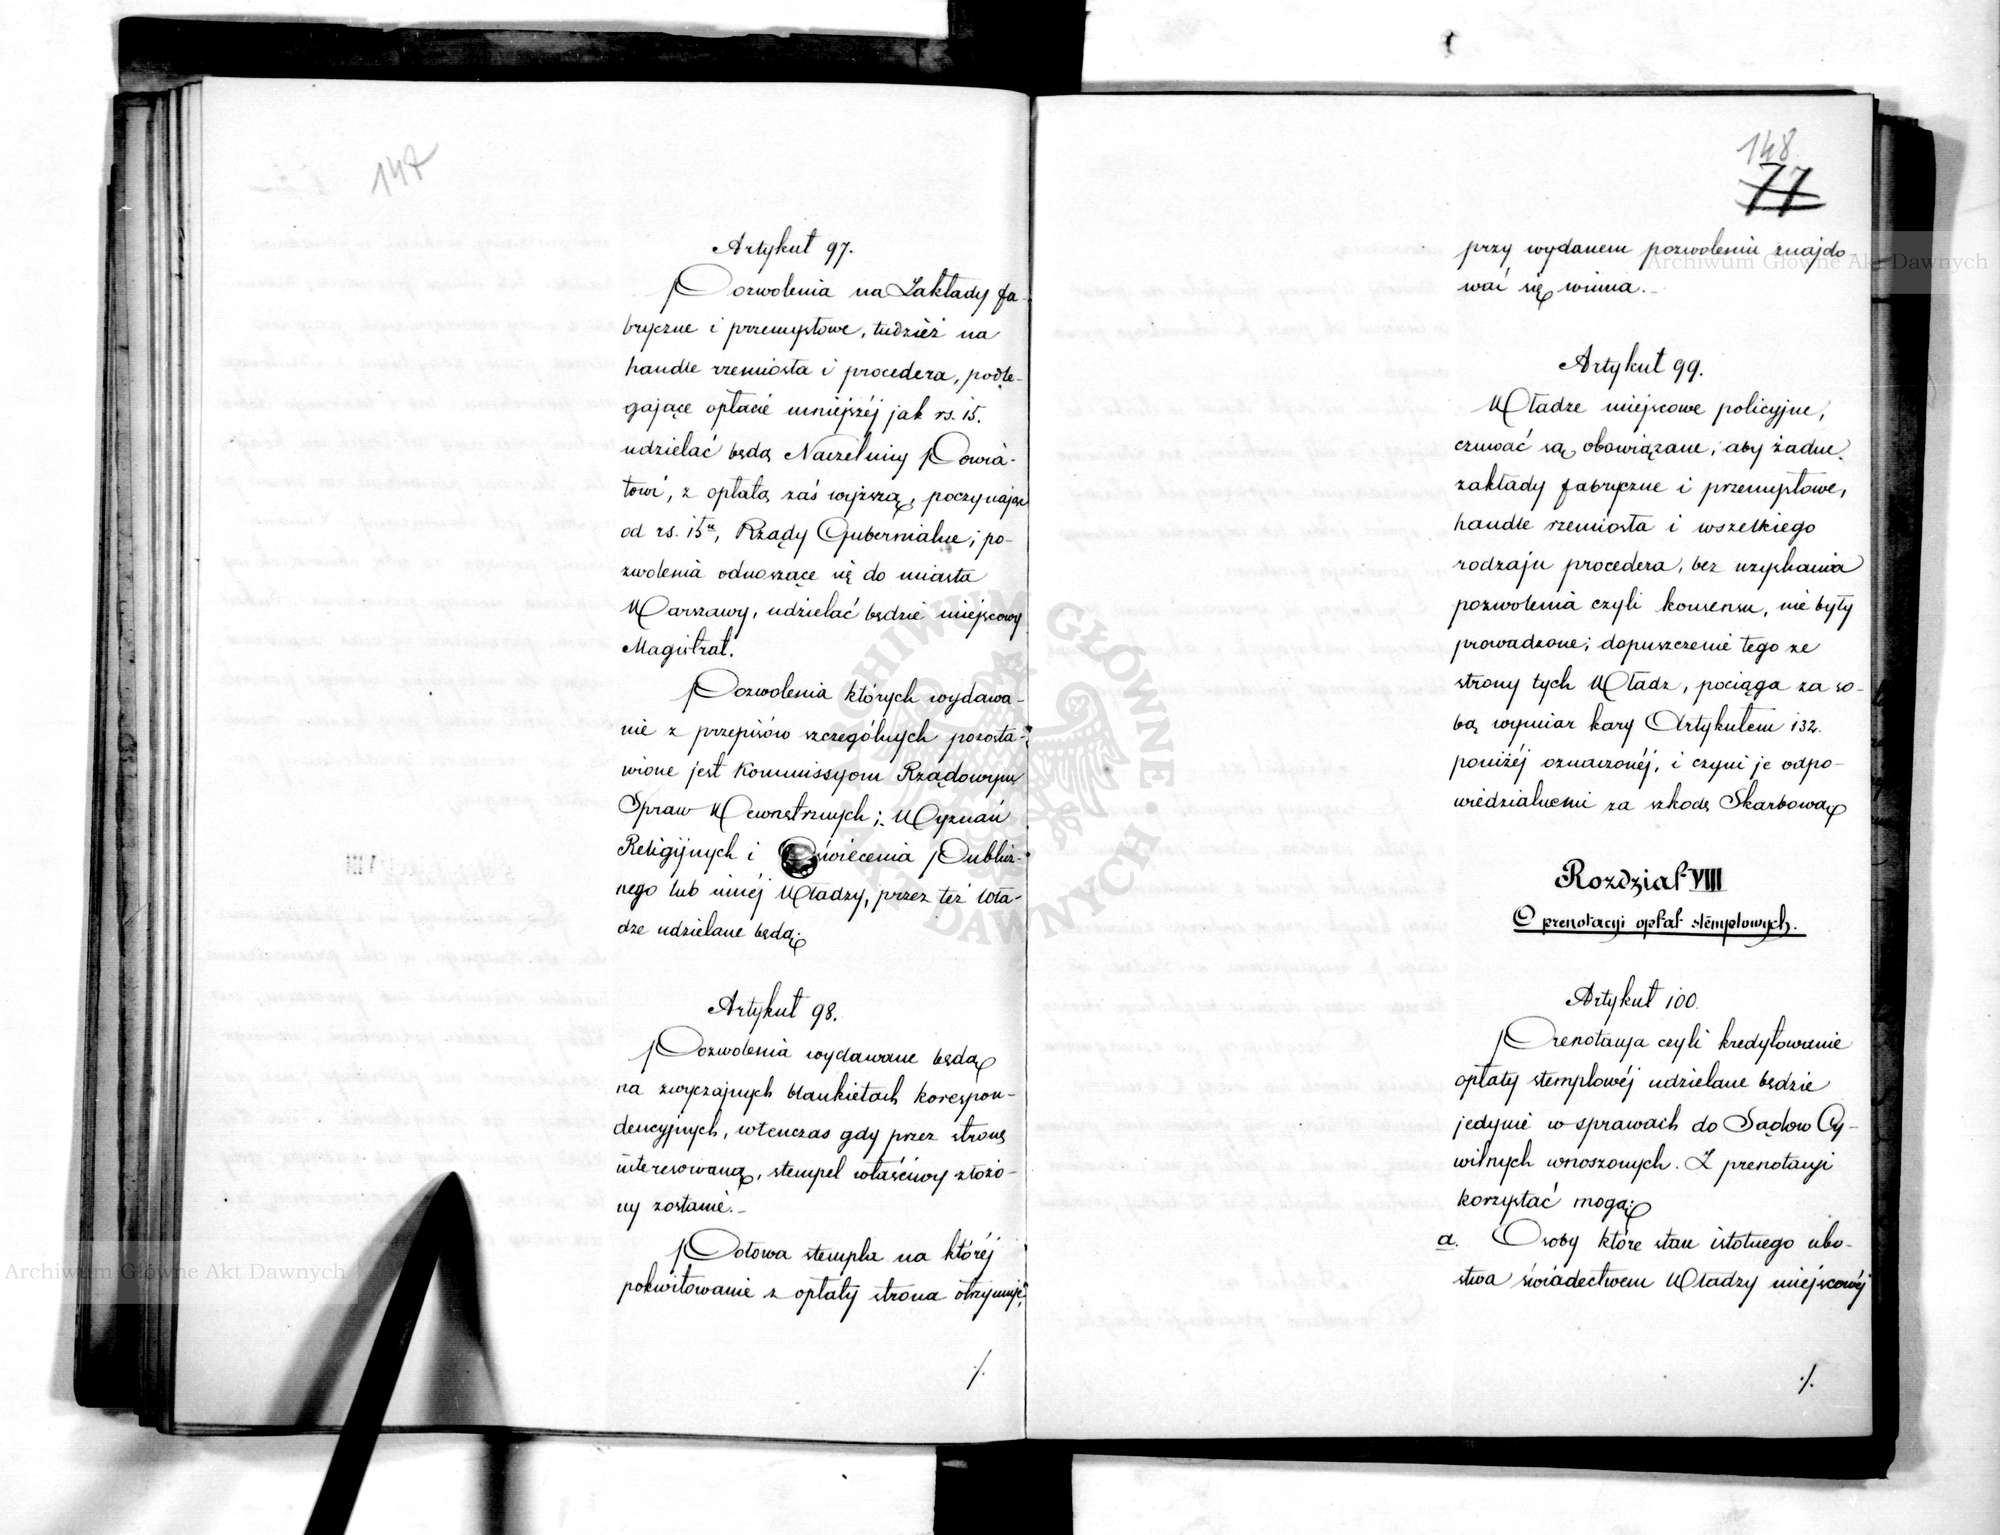 147
Artykuł 97.
Pozwolenia na Zakłady fa-
bryczne i przemysłowe, tudzież na
handle rzemiosła i procedera, podle-
gające opłacie mniejszéj jak rs. 15.
udzielać będą Naczelnicy Powia-
towi, z opłatą zaś wyższą, poczynając
od rs. 15u, Rządy Gubernialne; po-
zwolenia odnoszące się do miasta
Warszawy, udzielać będzie miejscowy
Magistrat.
Pozwolenia których wydawa-
nie z przepisów szczególnych pozosta-
wione jest Kommissyom Rządowym
Spraw Wewnętrznych; Wyznań
Religijnych i Oświecenia Publicz-
nego lub innéj Władzy, przez też wła-
dze udzielane będą.
Artykuł 98.
Pozwolenia wydawane będą
na zwyczajnych blankietach korespon-
dencyjnych, wtenczas gdy przez stronę
interesowaną, stempel właściwy złożo-
ny zostanie.-
Połowa stempla na któréj
pokwitowanie z opłaty strona otrzymuje,
./.
148
77
przy wydanem pozwoleniu znajdo
wać się winna.-
Artykuł 99.
Władze miejscowe policyjne,
czuwać są obowiązane, aby żadne
zakłady fabryczne i przemysłowe,
handle rzemiosła i wszelkiego
rodzaju procedera, bez uzyskania
pozwolenia czyli konsensu, nie były
prowadzone; dopuszczenie tego ze
strony tych Władz, pociąga za so-
bą wymiar kary Artykułem 132.
poniżéj oznaczonéj, i czyni je odpo-
wiedzialnemi za szkodę Skarbową
Rozdział VIII
O prenotacyi opłat stęmplowych.
Artykuł 100.
Prenotacya czyli kredytowanie
opłaty stemplowéj udzielane będzie
jedynie w sprawach do Sądów Cy-
wilnych wnoszonych. Z prenotacyi
korzystać mogą:
a. Osoby które stan istotnego ubó-
stwa świadectwem Władzy miejscowéj
./.
Archiwum Główne Akt Dawnych
Archiwum Główne Akt Dawnych
ARCHIWUM GŁÓWNE AKT DAWNYCH